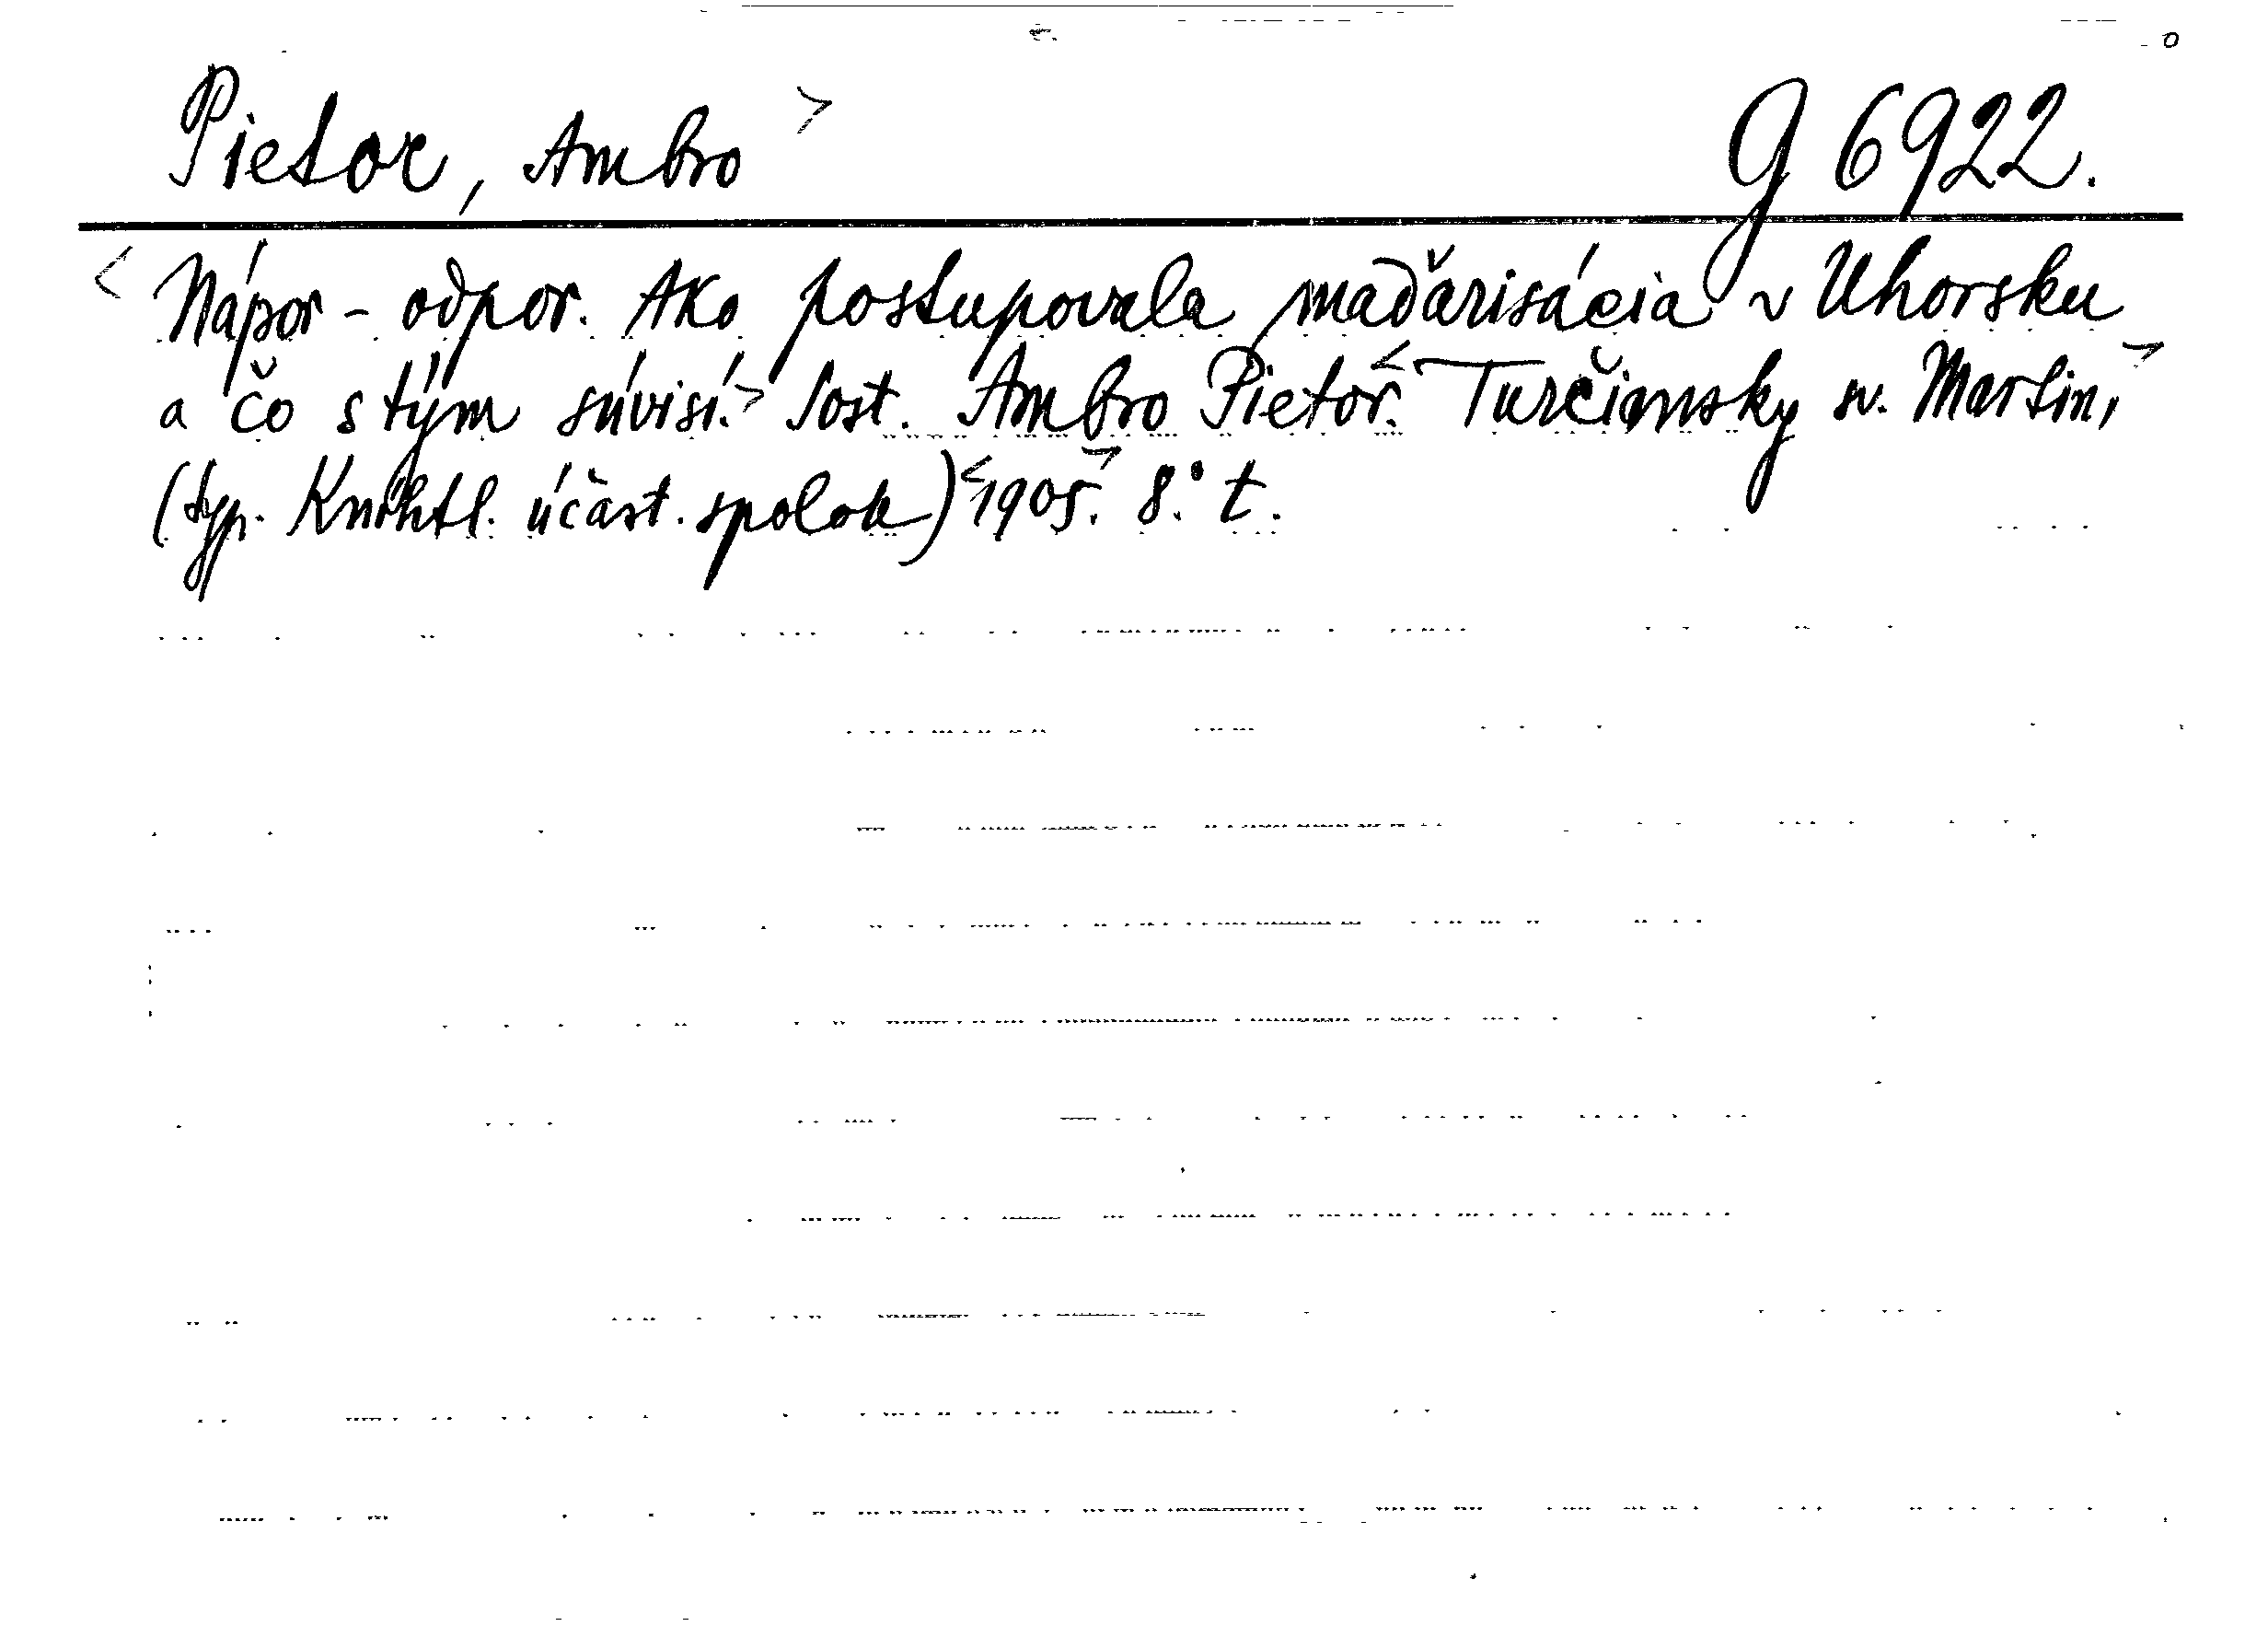 Pietor, Ambro > G 6922.
< Nápor - odpor. Ako postupovala maďarisácia v Uhorsku
a čo s tým súvisí.> Sost. Ambro Pietor.< Turčiansky sv. Martin,>
(typ. Kníhtl. účast. spolok) <1905.> 8.° t.